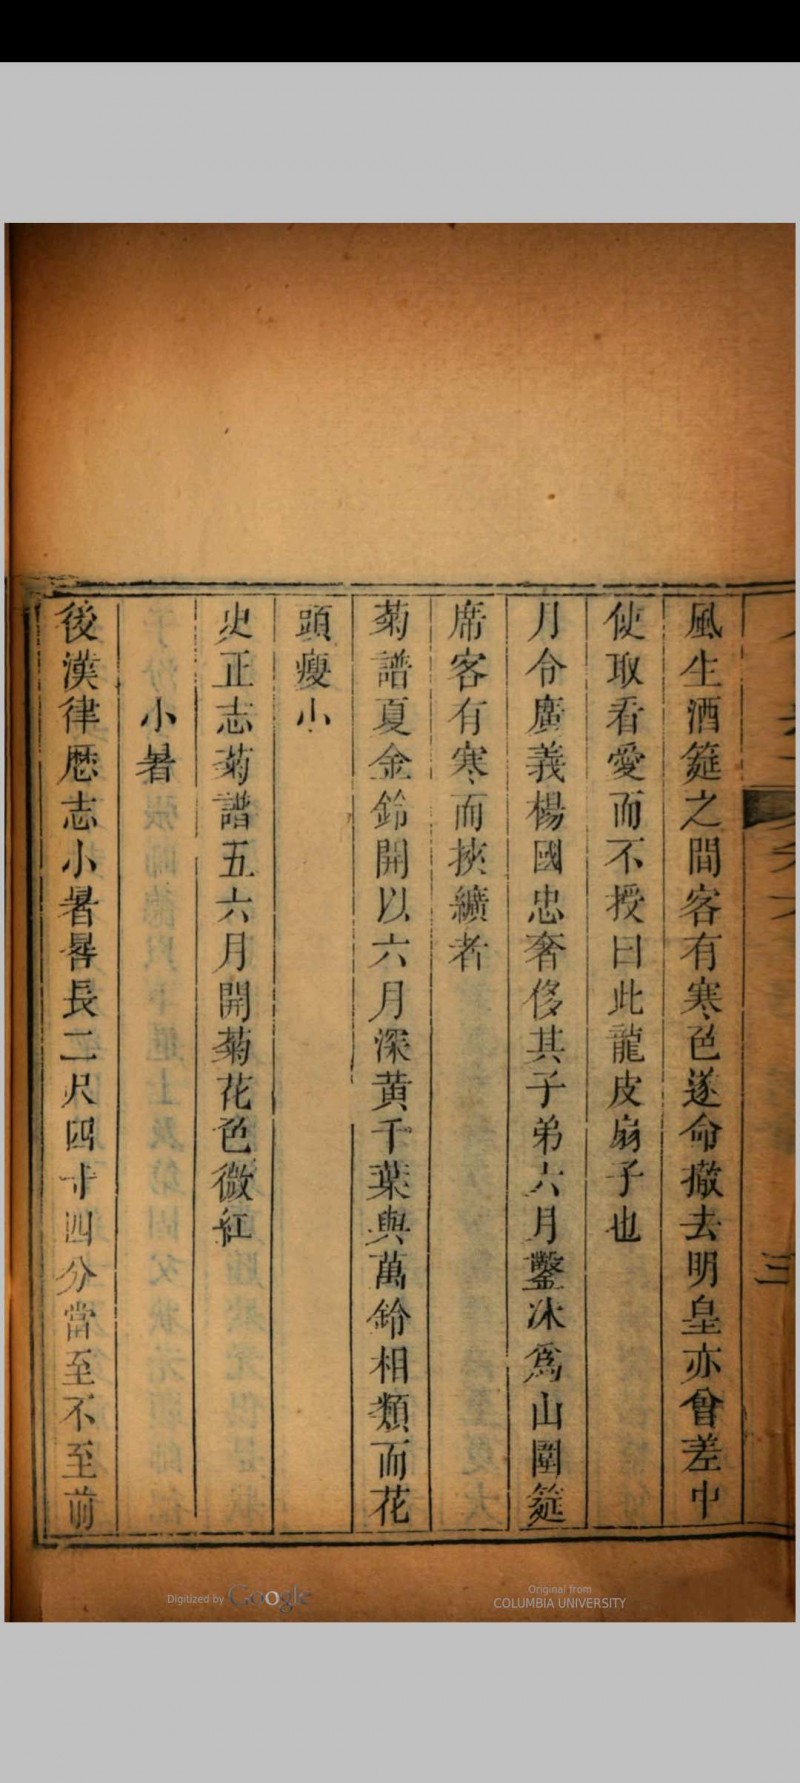 風生酒筵之間客有寒色遂命撤去明皇亦曾差中
使取看愛而不授曰此龍皮扇子也
月令廣義楊國忠奢侈其子弟六月鑿冰爲山圍筵
席客有寒而挾纊者
菊譜夏金鈴開以六月深黄千葉與萬鈴相類而花
頭瘦小
史正志菊譜五六月開菊花色微紅
小暑
後漢律歴志小暑晷長二尺四寸四分當至不至前
三
Digitized by Google
Original from
COLUMBIA UNIVERSITY